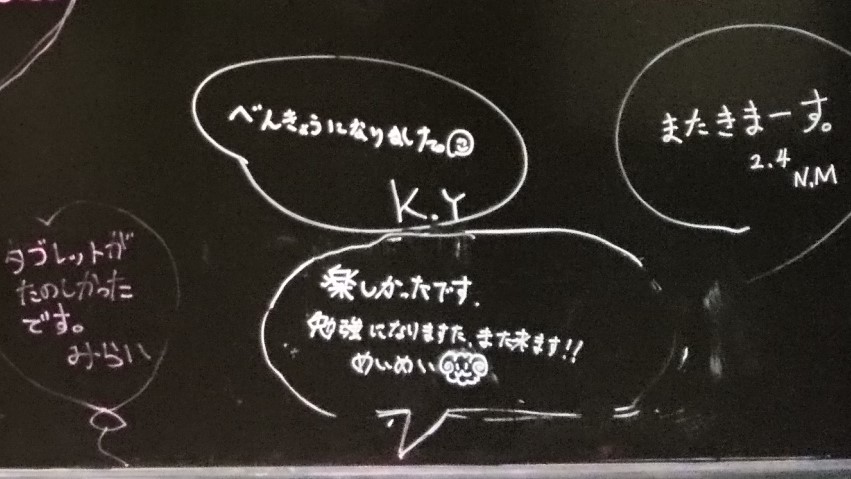 べんきょうになりました。
K.Y
またきまーす。
2.4
N.M
タブレットが
たのしかった
です。
みらい
楽しかったです.
勉強になりますた、また来ます!!
めぃめぃ